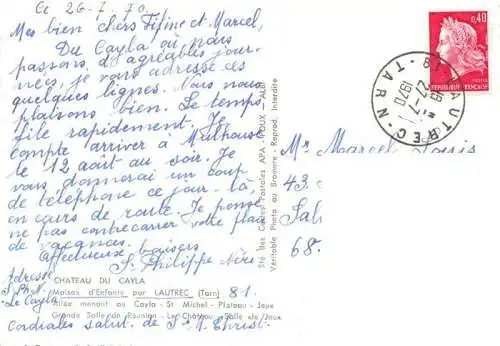 Ce 26.7.70.
Mes bien chers Fifine et Marcel,
Du Cayla où nous
passons d'agréables jour-
nées, je vous adresse ces
quelques lignes. Nous nous
plaisons bien. Le temps
file rapidement. Je
compte arriver à Mulhouse
le 12 août au soir. Je
vous donnerai un coup
de téléphone ce jour-là,
en cours de route. Je pense
ne pas contrecarrer votre plan
de vacances.
Affectueux baisers
S. Philippe
Adresse
S. Ph. N.
Le Cayla
CHATEAU DU CAYLA
Maison d'Enfants par LAUTREC (Tarn) 81.
Allée menant au Cayla - St Michel - Plateau - Jeux
Grande Salle de Réunion - Le Château - Salle de Jeux
cordiales salut. de
Sté des Cartes Postales APA - POUX ALBI
Véritable Photo au Bromure - Reprod. Interdite
0,40
REPUBLIQUE FRANÇAISE
LAUTREC - TARN
27-7
1970
Mr Marcel
43.
68.